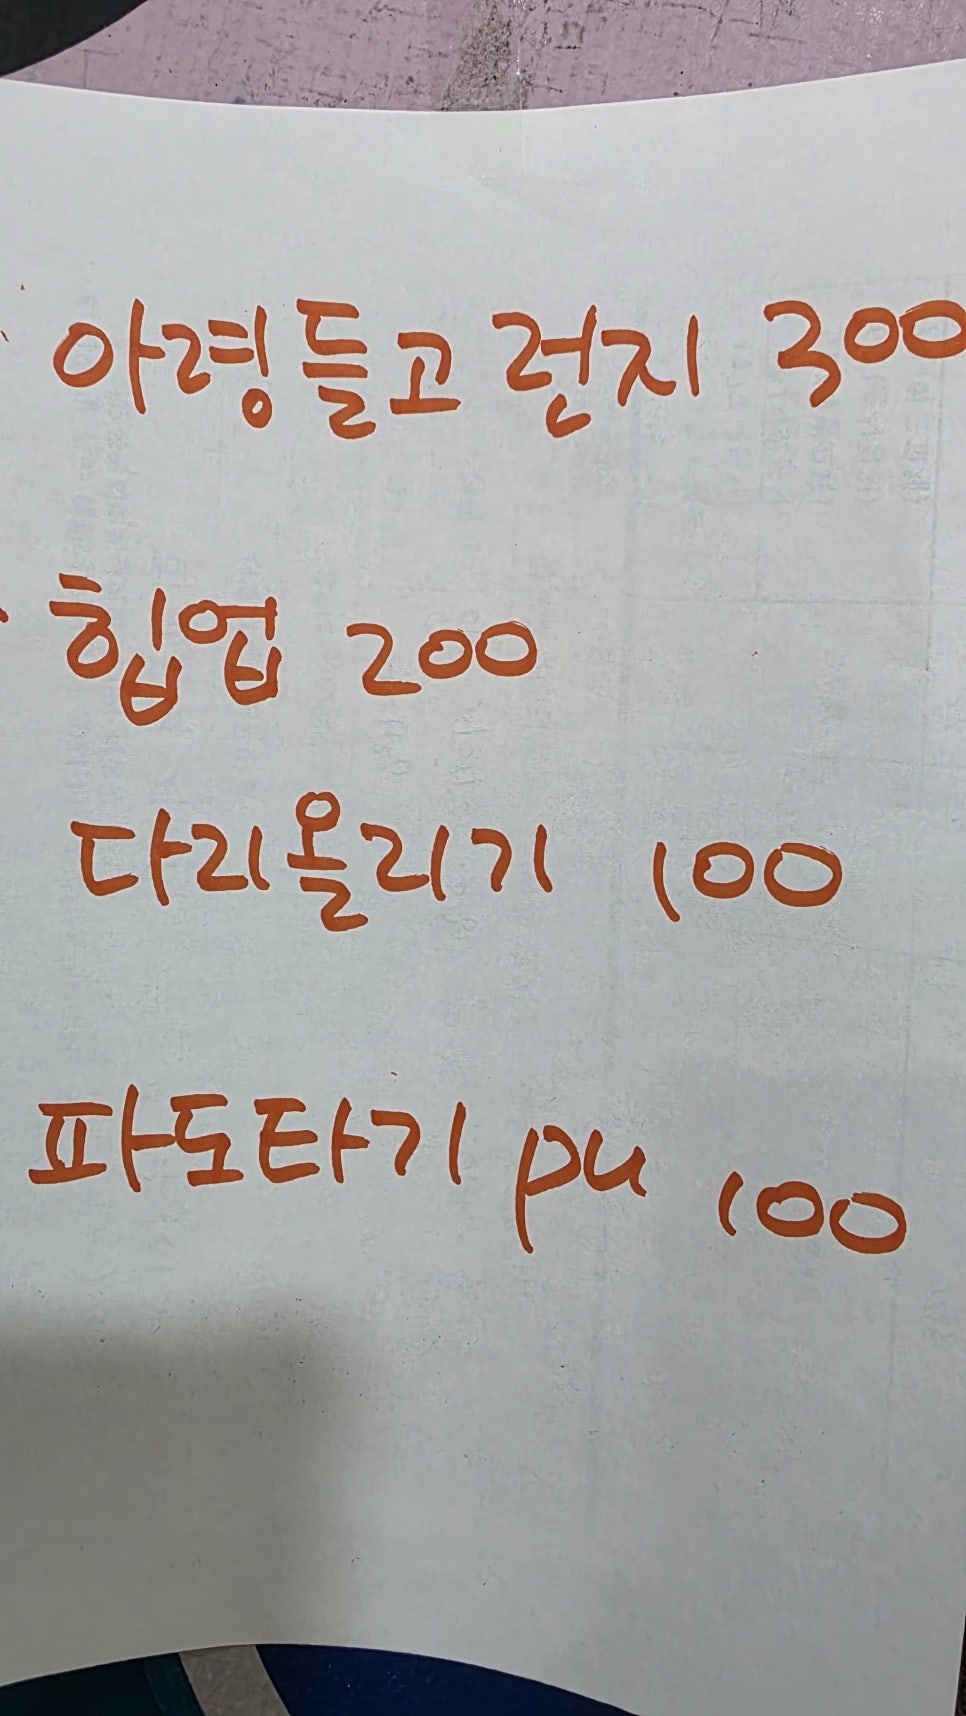 아령들고 런지 300
힙업 200
다리올리기 100
파도타기 pu 100